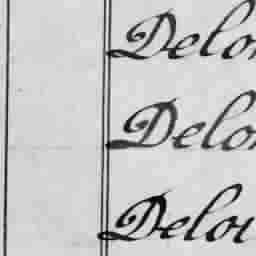 Delo
Delo
Delou